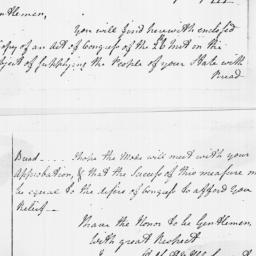 Gentlemen,
You will find herewith enclosed
Copy of an act of Congress of the 26 Inst on the
Subject of supplying the People of your State with
Bread
Bread .... I hope the Mode will meet with your
Approbation, & that the Success of this measure m
be equal to the desire of Congress to afford you
Relief—
I have the Honor to be Gentlemen,
With great Respect